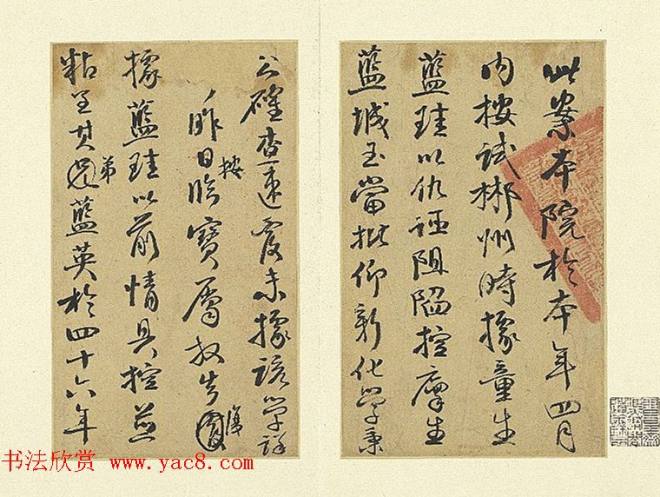 此案本院於本年四月
内按試郴州時據童生
藍珪以仇誣阻陷控廩生
藍城玉當批仰新化学秉
公確查速覆未據該学詳
昨日臨寳属放告
按
據藍珪以前情具控並
粘呈其
弟
藍英於四十六年
书法欣赏 www.yac8.com